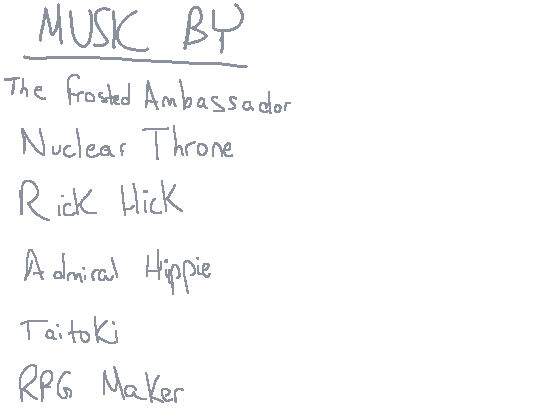 MUSIC BY
The Frosted Ambassador
Nuclear Throne
Rick Hick
Admiral Hippie
Taitoki
RPG Maker